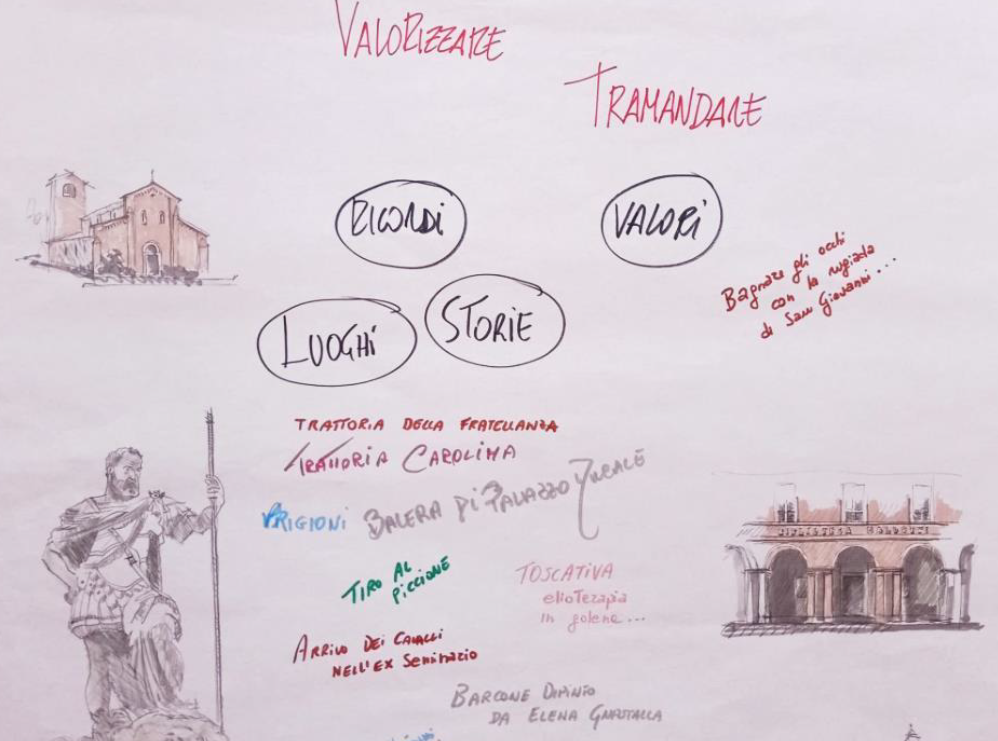 VALORIZZARE
TRAMANDARE
RICORDI
VALORI
Bagnare gli occhi
con la rugiada
di San Giovanni...
LUOGHI
STORIE
TRATTORIA DELLA FRATELLANZA
TRATTORIA CAROLINA
PRIGIONI
BALERA DI PALAZZO DUCALE
TIRO AL
PICCIONE
TOSCATIVA
elioTerapia
in golena...
ARRIVO DEI CAVALLI
NELL'EX SEMINARIO
BIBLIOTECA MALDOTTI
BARCONE DIPINTO
DA ELENA